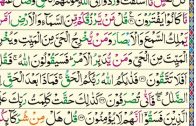 كَانُوا يَفْتَرُونَ قُلْ مَن يَرْزُقُكُم مِّنَ السَّمَاءِ وَالْأَرْضِ
يَمْلِكُ السَّمْعَ وَالْأَبْصَارَ وَمَن يُخْرِجُ الْحَيَّ مِنَ الْمَيِّتِ
مِنَ الْحَيِّ وَمَن يُدَبِّرُ الْأَمْرَ فَسَيَقُولُونَ اللَّهُ
أَفَلَا تَتَّقُونَ فَذَٰلِكُمُ اللَّهُ رَبُّكُمُ الْحَقُّ فَمَاذَا بَعْدَ الْحَقِّ
الضَّلَالُ فَأَنَّىٰ تُصْرَفُونَ كَذَٰلِكَ حَقَّتْ كَلِمَتُ رَبِّكَ
فَسَقُوا أَنَّهُمْ لَا يُؤْمِنُونَ قُلْ هَلْ مِن